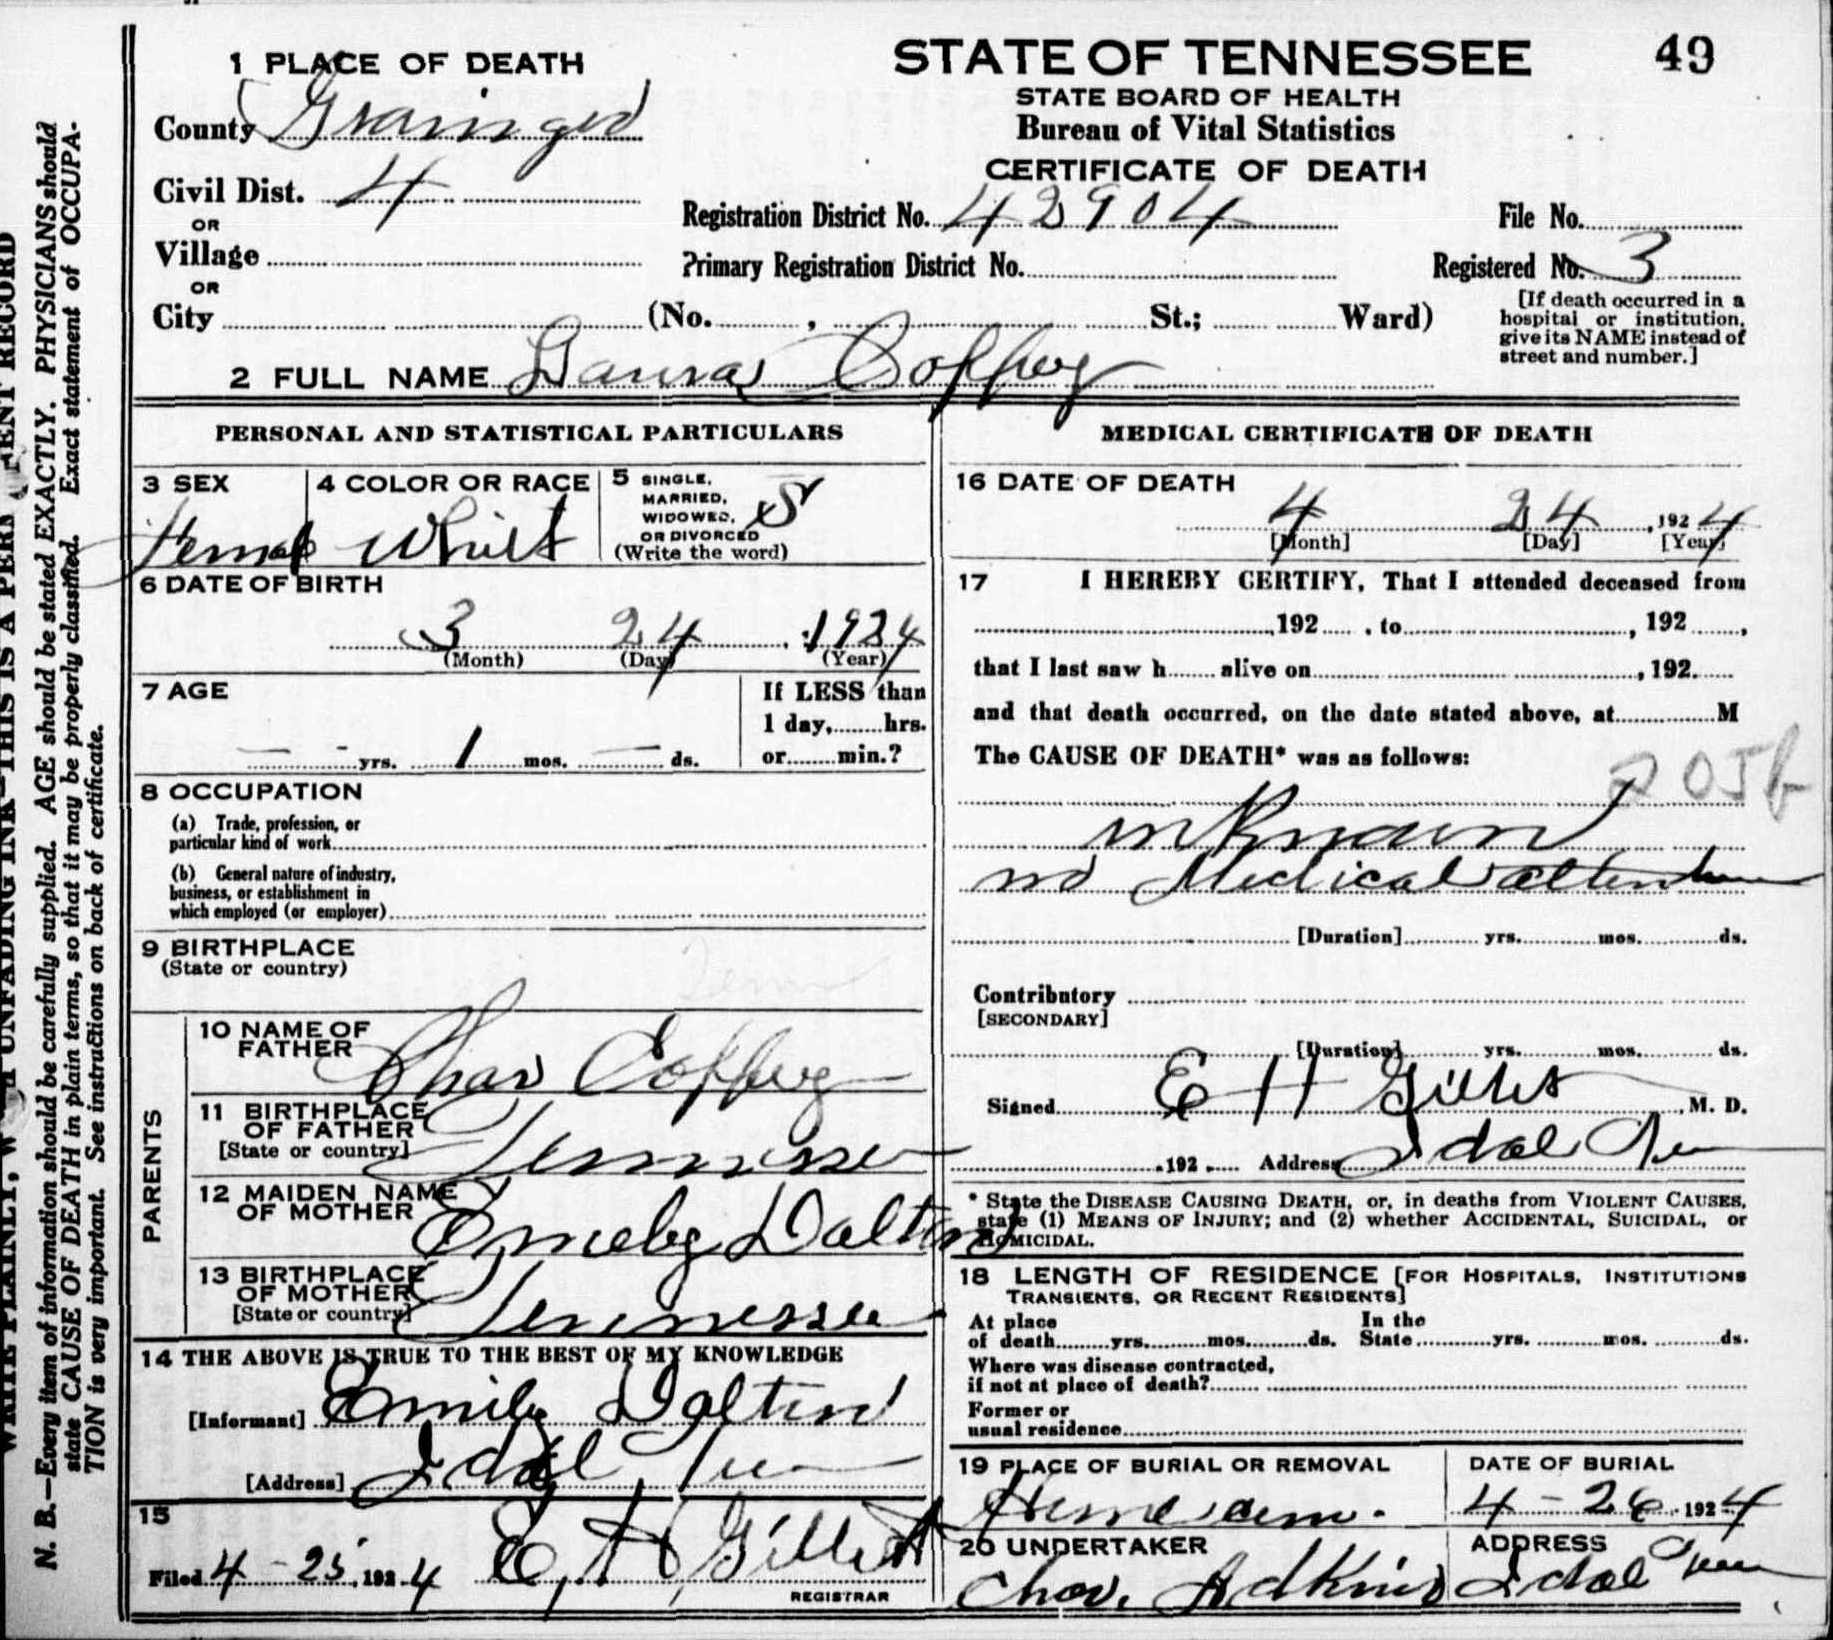 49
1 PLACE OF DEATH
STATE OF TENNESSEE
STATE BOARD OF HEALTH
Bureau of Vital Statistics
CERTIFICATE OF DEATH
County Grainger
Civil Dist. 4
OR
Village
OR
City (No. , St.; Ward)
Registration District No. 42904
Primary Registration District No.
File No.
Registered No. 3
[If death occurred in a
hospital or institution,
give its NAME instead of
street and number.]
2 FULL NAME Coffey
PERSONAL AND STATISTICAL PARTICULARS
3 SEX
Femal
4 COLOR OR RACE
Whiet
5 SINGLE,
MARRIED,
WIDOWED,
OR DIVORCED
(Write the word)
S
6 DATE OF BIRTH
3 24 , 1924
(Month) (Day) (Year)
7 AGE
— - yrs. 1 mos. — ds.
If LESS than
1 day, hrs.
or min.?
8 OCCUPATION
(a) Trade, profession, or
particular kind of work
(b) General nature of industry,
business, or establishment in
which employed (or employer)
9 BIRTHPLACE
(State or country)
Tenn
PARENTS
10 NAME OF
FATHER
Chas Coffey
11 BIRTHPLACE
OF FATHER
[State or country]
Tennessee
12 MAIDEN NAME
OF MOTHER
Emely Dalton
13 BIRTHPLACE
OF MOTHER
[State or country]
Tennessee
14 THE ABOVE IS TRUE TO THE BEST OF MY KNOWLEDGE
[Informant] Emily Dalton
[Address] Idol Ten
15
Filed 4 - 25, 1924 E, H Gillett
REGISTRAR
MEDICAL CERTIFICATE OF DEATH
16 DATE OF DEATH
4 24 , 1924
[Month] [Day] [Year]
17 I HEREBY CERTIFY, That I attended deceased from
, 192 , to , 192 ,
that I last saw h alive on , 192
and that death occurred, on the date stated above, at M
The CAUSE OF DEATH* was as follows:
205b
unknown
no Medical attention
[Duration] yrs. mos. ds.
Contributory
[SECONDARY]
[Duration] yrs. mos. ds.
Signed E H Gillet , M. D.
, 192 Address Idol Ten
* State the DISEASE CAUSING DEATH, or, in deaths from VIOLENT CAUSES,
state (1) MEANS OF INJURY; and (2) whether ACCIDENTAL, SUICIDAL, or
HOMICIDAL.
18 LENGTH OF RESIDENCE [FOR HOSPITALS, INSTITUTIONS
TRANSIENTS, OR RECENT RESIDENTS]
At place
of death yrs. mos. ds.
In the
State yrs. mos. ds.
Where was disease contracted,
if not at place of death?
Former or
usual residence
19 PLACE OF BURIAL OR REMOVAL
cem.
DATE OF BURIAL
4 - 26 , 1924
20 UNDERTAKER
Chas. Adkins
ADDRESS
Idol Tenn
N. B.—Every item of information should be carefully supplied. AGE should be stated EXACTLY. PHYSICIANS should
state CAUSE OF DEATH in plain terms, so that it may be properly classified. Exact statement of OCCUPA-
TION is very important. See instructions on back of certificate.